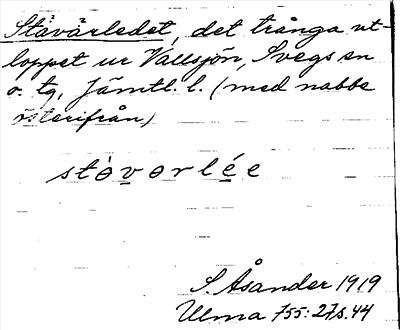 Ståvårledet, det trånga ut-
loppet ur Vallsjön, Svegs sn
o. tg, Jämtl. l. (med nabbe
österifrån)
stòvorlée
S. Åsander 1919
Ulma 755:27 s. 44